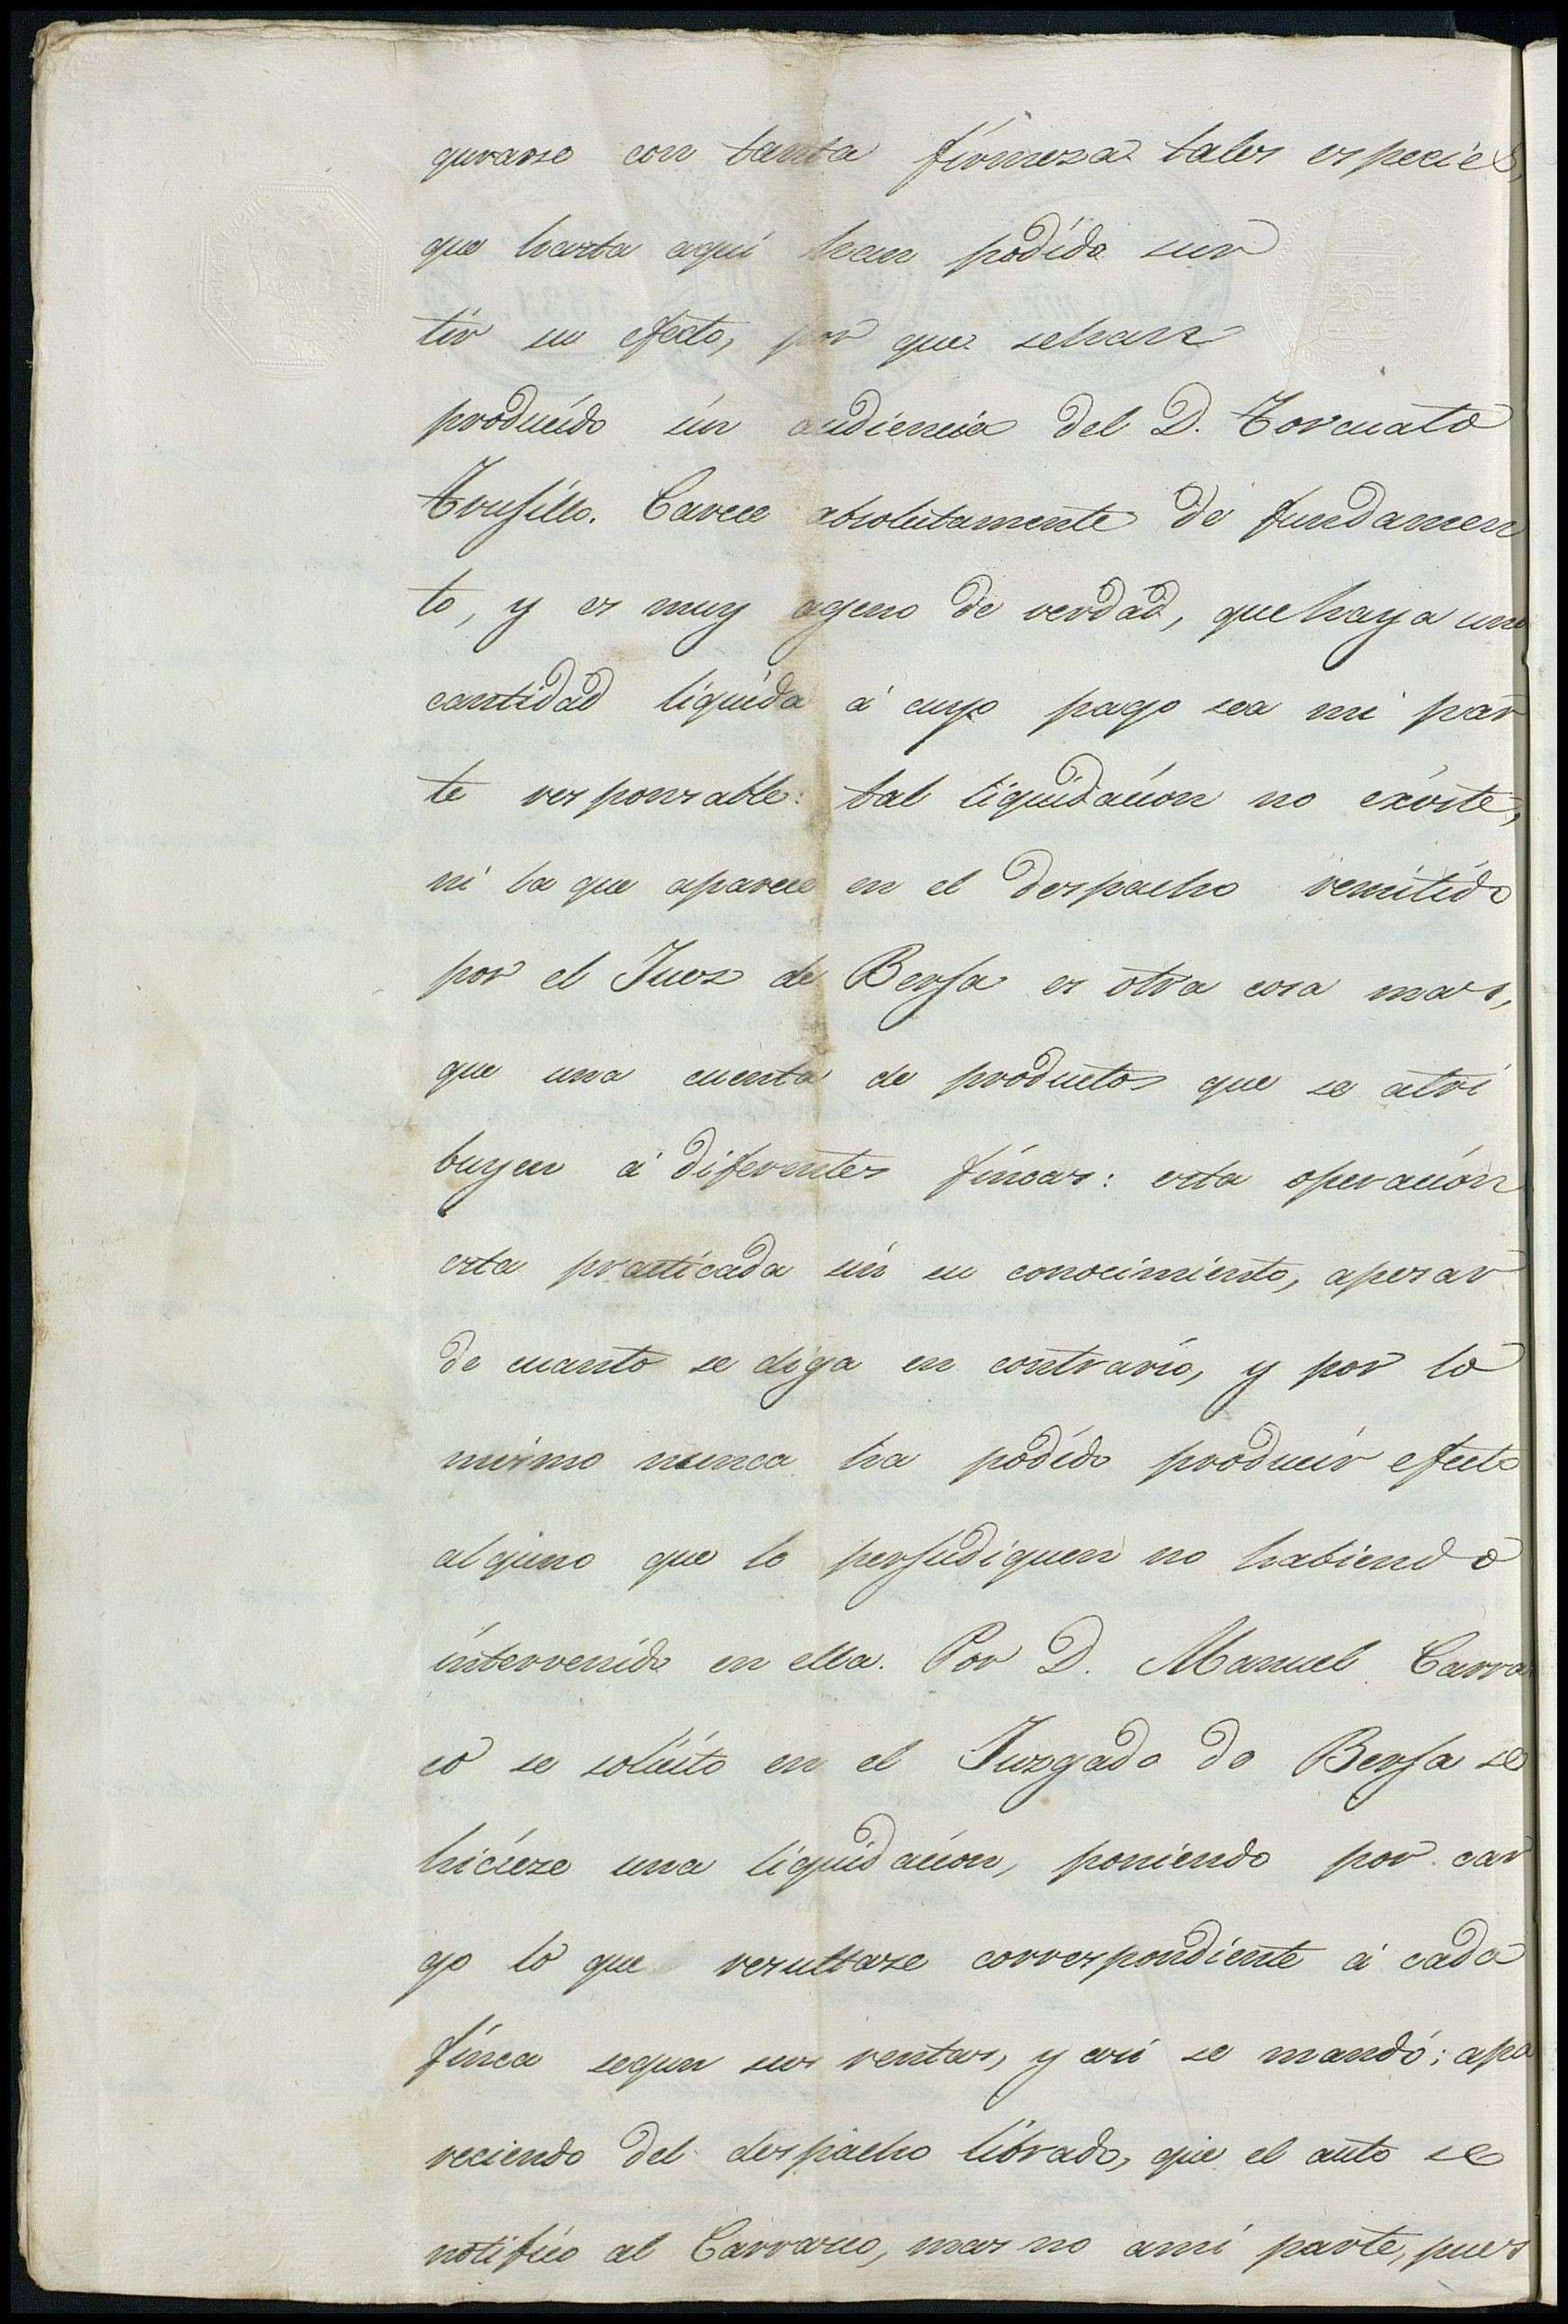 gurarse con tanta firmeza tales especies,
que hasta aquí han podido sur
tir su efecto, por que sehan
producido sin audiencia del D. Torcuato
Trujillo. Carece absolutamente de fundamen
to, y es muy ageno de verdad, quehaya una
cantidad liquida á cuyo pago sea mi par
te responsable: tal liquidacion no existe,
ni la que aparece en el despacho remitido
por el Juez de Berja es otra cosa mas,
que una cuenta de productos que se atri
buyen á diferentes fincas: esta operación
esta practicada sin su conocimiento, apesar
de cuanto se diga en contrario, y por lo
mismo nunca ha podido producir efecto
alguno que le perjudiquen no habiendo
intervenido en ella. Por D. Manuel Carras
co se solicito en el Juzgado de Berja se
hicieze una liquidacion, poniendo por car
go lo que resultase correspondiente á cada
finca segun sus rentas, y asi se mandó; apa
reciendo del despacho librado, que el auto se
notifico al Carrasco, mas no ami parte, pues